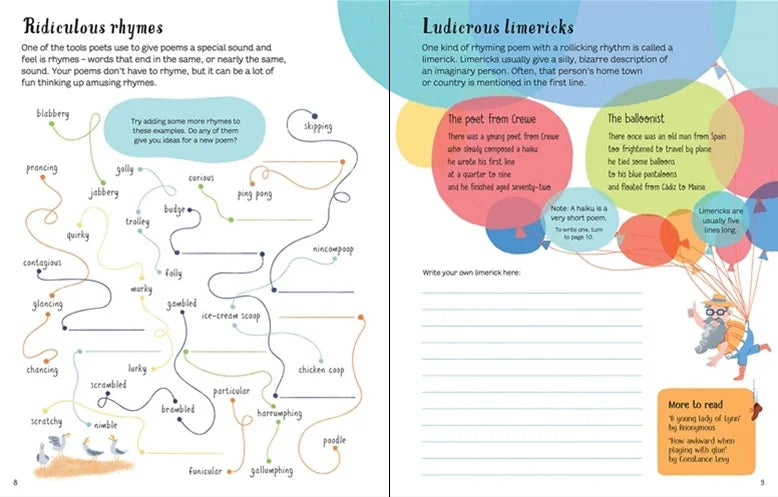 Ridiculous rhymes
One of the tools poets use to give poems a special sound and
feel is rhymes – words that end in the same, or nearly the same,
sound. Your poems don't have to rhyme, but it can be a lot of
fun thinking up amusing rhymes.
blabbery
Try adding some more rhymes to
these examples. Do any of them
give you ideas for a new poem?
skipping
prancing
golly
curious
jabbery
ping pong
budge
trolley
quirky
nincompoop
contagious
folly
murky
glancing
gambled
ice-cream scoop
chancing
lurky
chicken coop
scrambled
particular
scratchy
nimble
brambled
harrumphing
poodle
funicular
gallumphing
8
Ludicrous limericks
One kind of rhyming poem with a rollicking rhythm is called a
limerick. Limericks usually give a silly, bizarre description of
an imaginary person. Often, that person's home town
or country is mentioned in the first line.
The poet from Crewe
There was a young poet from Crewe
who slowly composed a haiku;
he wrote his first line
at a quarter to nine
and he finished aged seventy-two.
The balloonist
There once was an old man from Spain
too frightened to travel by plane;
he tied some balloons
to his blue pantaloons
and floated from Cádiz to Maine.
Note: A haiku is a
very short poem.
To write one, turn
to page 10.
Limericks are
usually five
lines long.
Write your own limerick here:
More to read
"A young lady of Lynn"
by Anonymous
"How awkward when
playing with glue"
by Constance Levy
9